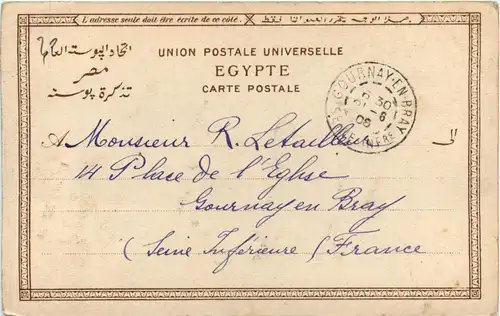 L'adresse seule doit être écrite de ce côté.
UNION POSTALE UNIVERSELLE
EGYPTE
CARTE POSTALE
مصر
تذكرة بوسته
GOURNAY-EN-BRAY
30
6
A Monsieur R. Letailleur
14 Place de l'Eglise
Gournay en Bray
(Seine Inférieure) France